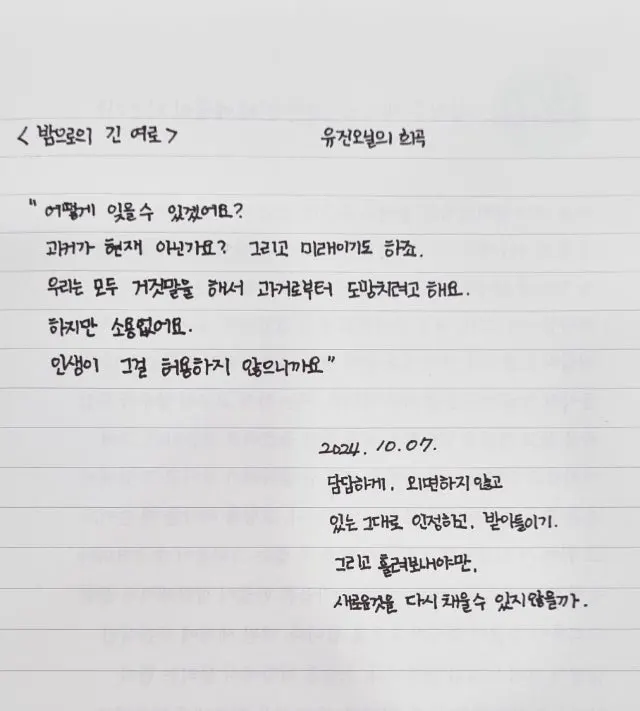 <밤으로의 긴 여로> 유진오닐의 희곡
"어떻게 잊을수 있겠어요?
과거가 현재 아닌가요? 그리고 미래이기도 하죠.
우리는 모두 거짓말을 해서 과거로부터 도망치려고 해요.
하지만 소용없어요.
인생이 그걸 허용하지 않으니까요"
2024. 10. 07.
담담하게, 외면하지 않고
있는 그대로 인정하고, 받아들이기.
그리고 흘려보내야만,
새로운것을 다시 채울수 있지않을까.